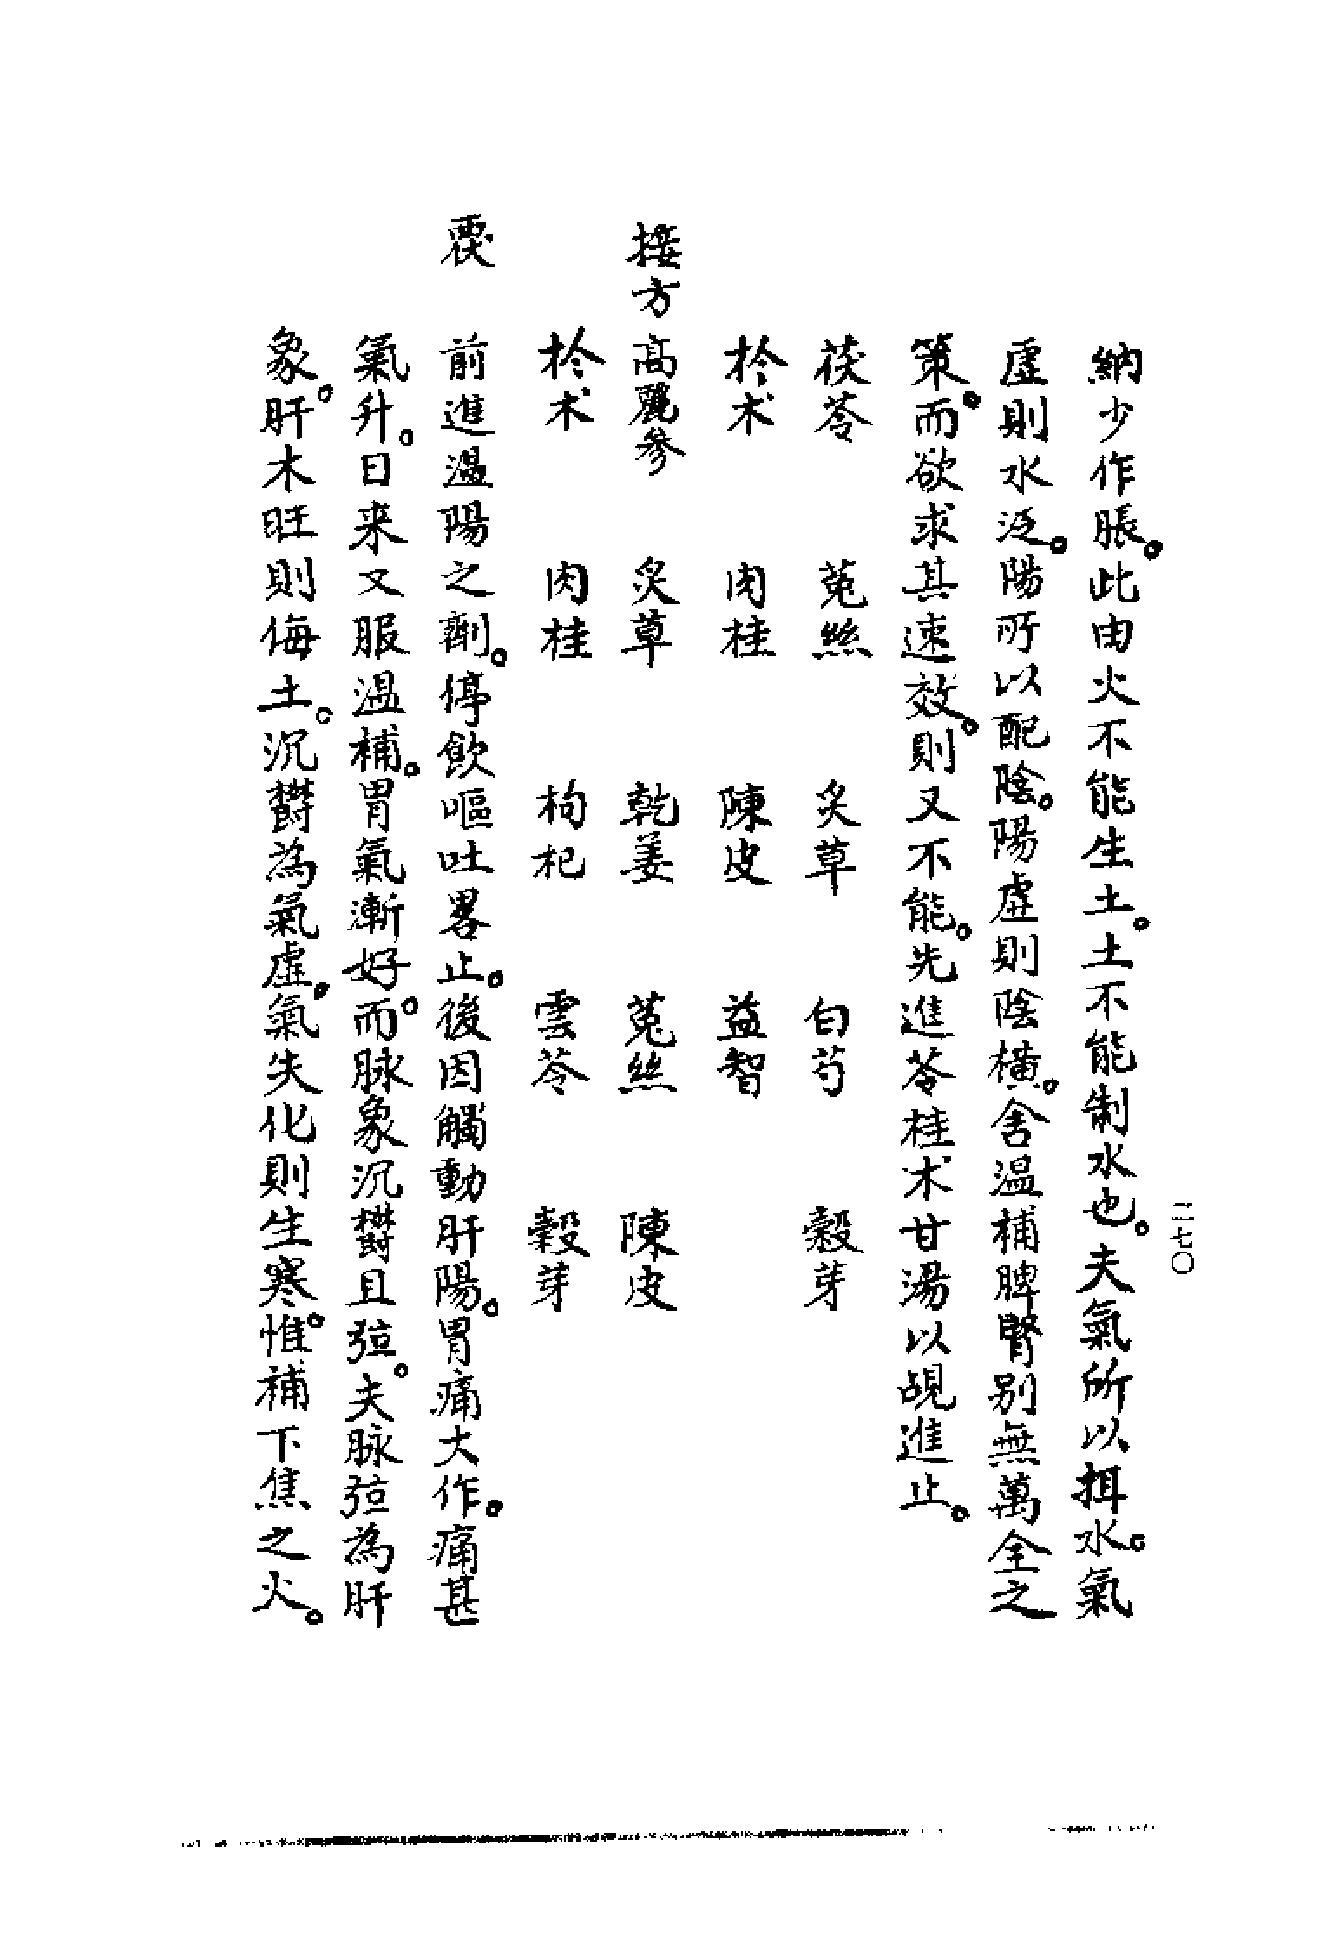 二七〇
納少作脹。此由火不能生土。土不能制水也。夫氣所以挕水。氣
虛則水泛。陽所以配陰。陽虛則陰橫。舍温補脾腎别無萬全之
策。而欲求其速效。則又不能。先進苓桂术甘湯以覘進止。
茯苓　菟絲　炙草　白芍　穀芽
於术　肉桂　陳皮　益智
接方　高麗參　炙草　乾姜　菟絲　陳皮
於术　肉桂　枸杞　雲苓　穀芽
覆　前進温陽之劑。停飲嘔吐畧止。後因觸動肝陽。胃痛大作。痛甚
氣升。日来又服温補。胃氣漸好。而脉象沉鬱且弦。夫脉弦為肝
象。肝木旺則侮土。沉鬱為氣虛。氣失化則生寒。惟補下焦之火。